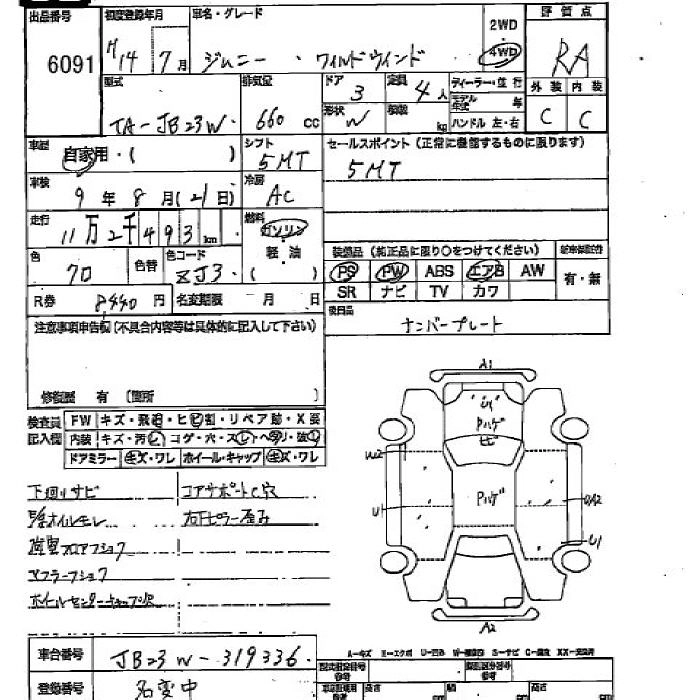 出品番号
6091
初度登録年月
H14 7月
車名・グレード
ジムニー ・ ワイルドウインド
2WD
4WD
評価点
RA
型式
TA-JB23W
排気量
660 cc
ドア
3
形状
W
定員
4人
積載
kg
ディーラー・並行
モデル年式 年
ハンドル 左・右
外装
C
内装
C
車歴
自家用・( )
シフト
5MT
セールスポイント(正常に機能するものに限ります)
5MT
車検
9年8月(21日)
冷房
AC
走行
11万2千493km
燃料
ガソリン
軽・油
( )
色
クロ
色替
色コード
ZJ3
装備品(純正品に限り○をつけてください)
PS PW ABS エアB AW
SR ナビ TV カワ
有・無
R券 8440円
名変期限 月 日
後日品
ナンバープレート
注意事項申告欄(不具合内容等は具体的に記入して下さい)
修復歴 有 (箇所 )
検査員記入欄
FW キズ・飛石・ヒビ割・リペア跡・X要
内装 キズ・汚レ コゲ・穴・スレ ヘタリ・破レ
ドアミラー キズ・ワレ ホイール・キャップ キズ・ワレ
下廻りサビ
コアサポートC穴
右Fピラー歪み
フロアフショク
マフラーフショク
ホイルセンターキャップ欠
A1
Pハゲ
ヒビ
W2
Pハゲ
U
U1
A2
A-キズ E-エクボ U-凹み W-補修跡 S-サビ C-腐食 XX-交換済
車台番号
JB23W-319336
登録番号
名変中